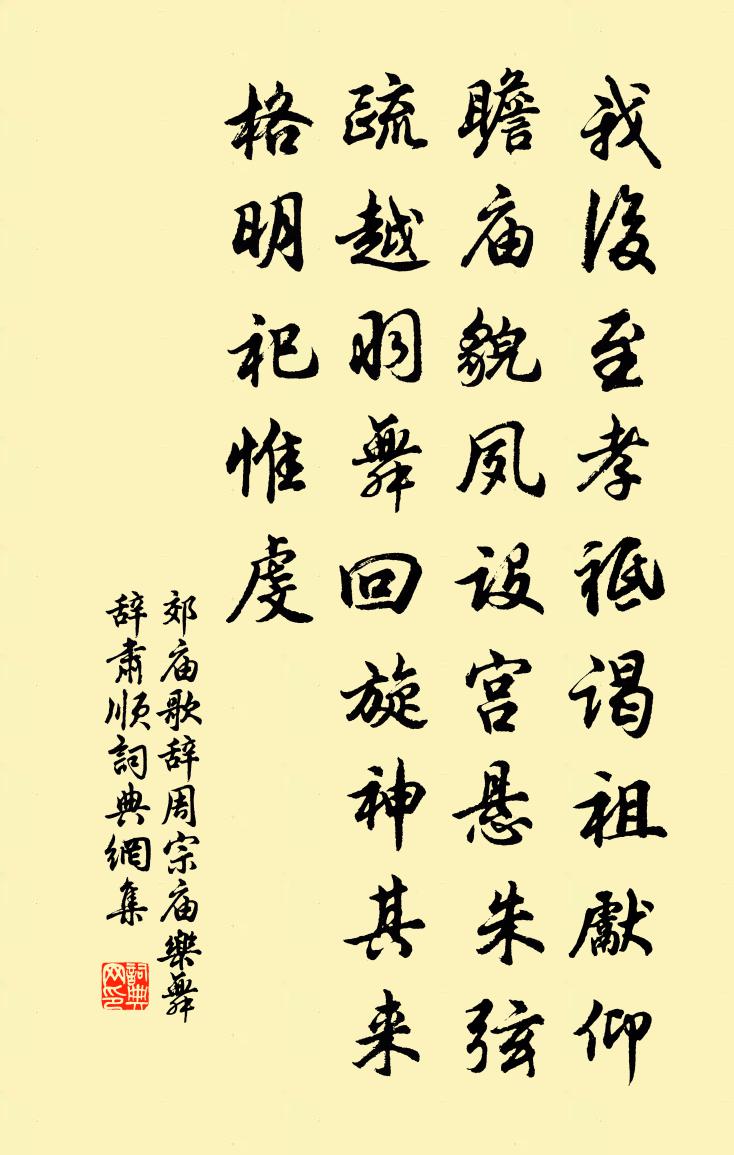 我後至孝祗谒祖獻仰
瞻庙貌夙设宫悬朱弦
疏越羽舞回旋神其来
格明祀惟虔
郊庙歌辞周宗庙樂舞
辞肅順詞典網集
詞典
网印